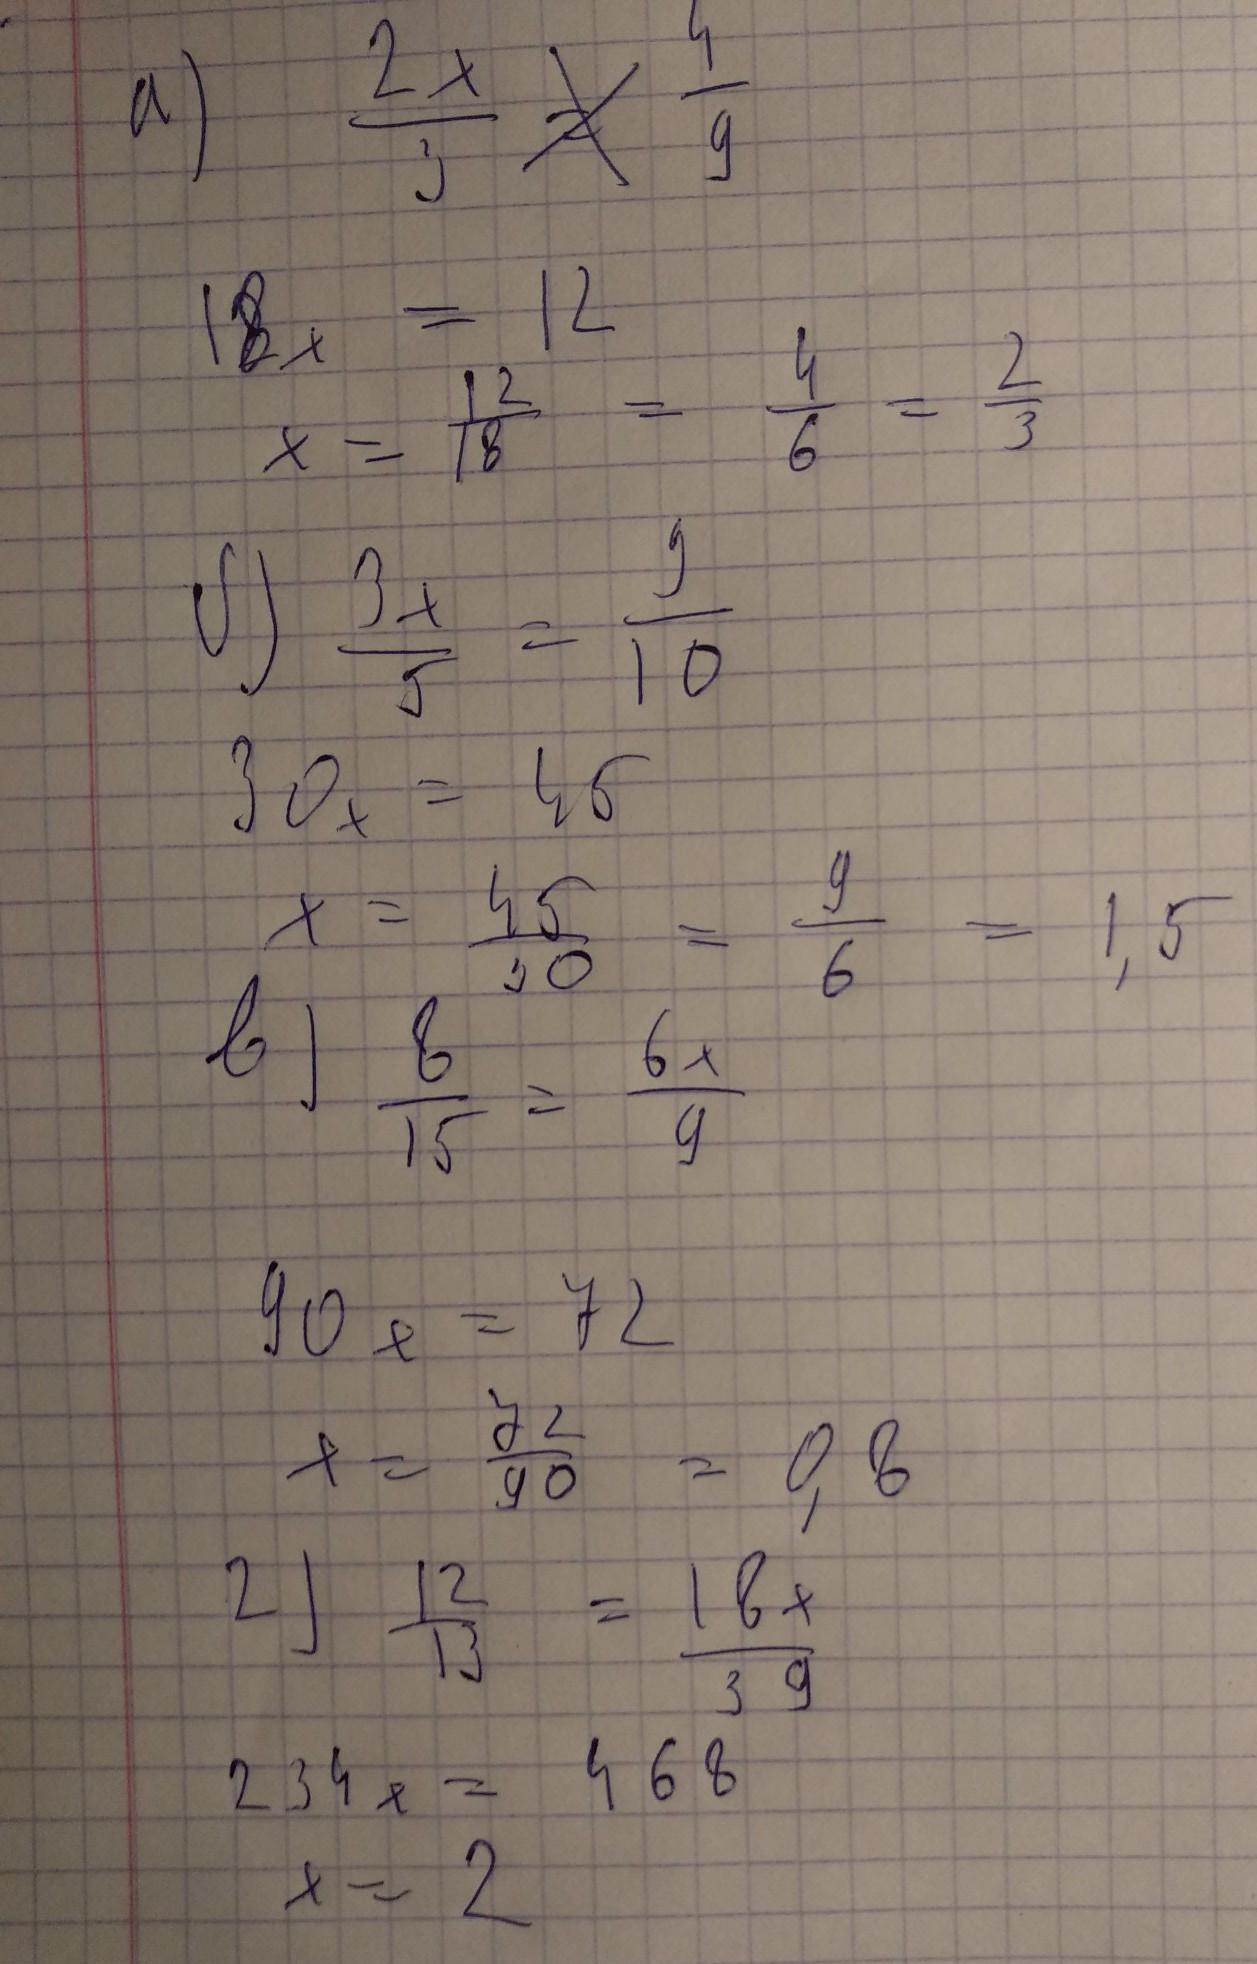 а) 2x/3 = 4/9
18x = 12
x = 12/18 = 4/6 = 2/3
б) 3x/5 = 9/10
30x = 45
x = 45/30 = 9/6 = 1,5
в) 8/15 = 6x/9
90x = 72
x = 72/90 = 0,8
г) 12/13 = 18x/39
234x = 468
x = 2